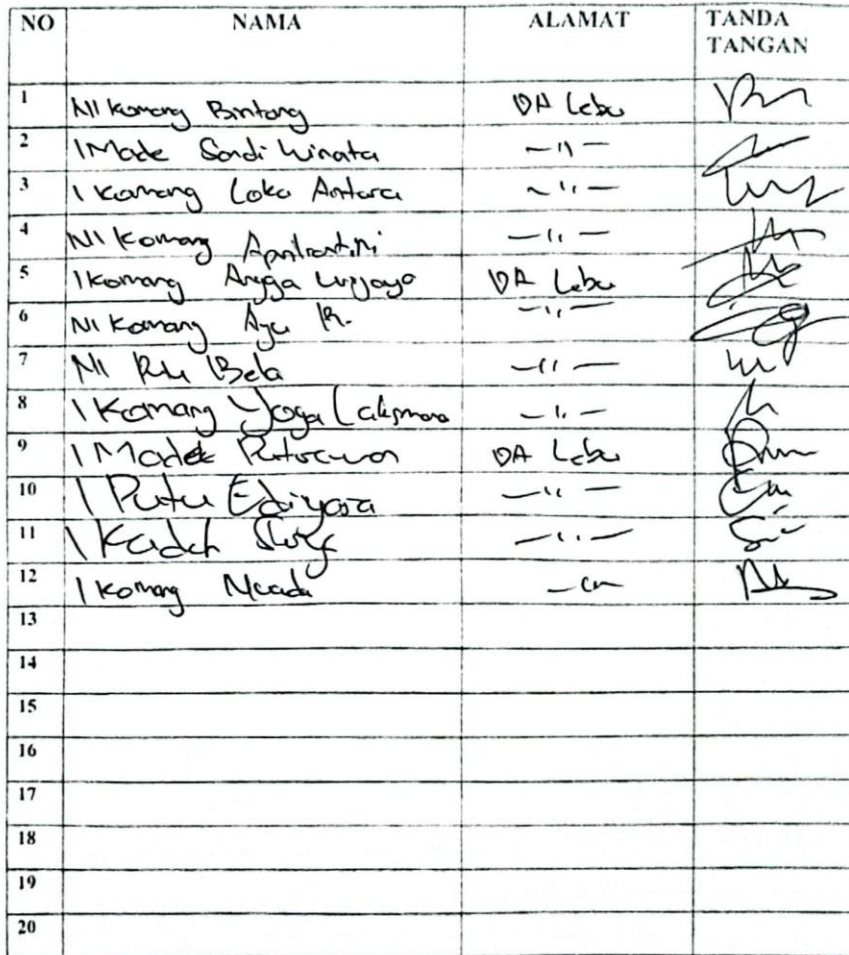 NO NAMA ALAMAT TANDA TANGAN
1 NI Komang Bintang DA Lebu
2 I Made Sandi Winata — 11 —
3 I Komang Loka Antara — 11 —
4 NI Komang Apriliantini — 11 —
5 I Komang Angga Wijaya DA Lebu
6 NI Komang Ayu R. — 11 —
7 NI Putu Bela — 11 —
8 I Komang Yoga — 11 —
9 I Made DA Lebu
10 I Putu Ediyasa — 11 —
11 I Kadek — 11 —
12 I Komang
13
14
15
16
17
18
19
20